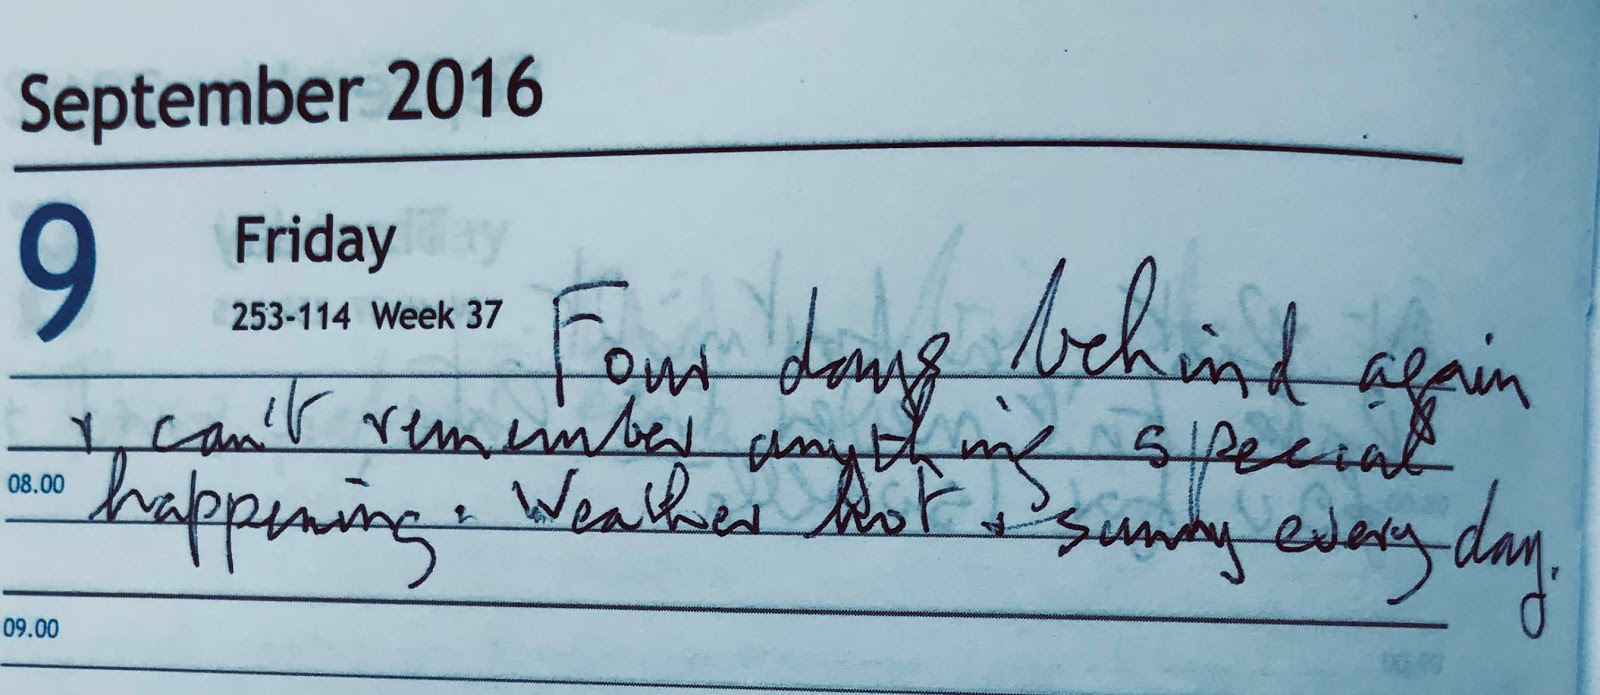 September 2016
9 Friday
253-114 Week 37
Four days behind again
& can't remember anything special
08.00 happening. Weather hot & sunny every day.
09.00